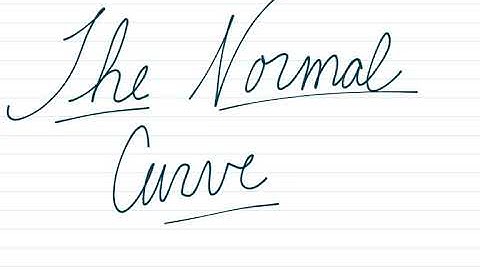 The Normal
Curve